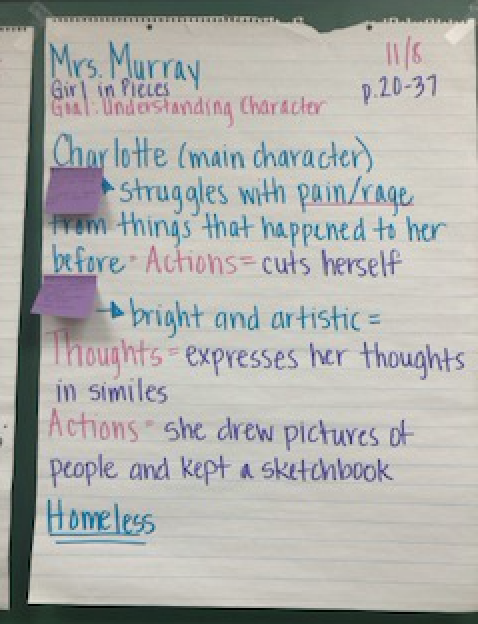 Mrs. Murray 11/8
Girl in Pieces p.20-37
Goal: Understanding Character
Charlotte (main character)
struggles with pain/rage
from things that happened to her
before Actions = cuts herself
bright and artistic =
Thoughts = expresses her thoughts
in similes
Actions = she drew pictures of
people and kept a sketchbook
Homeless